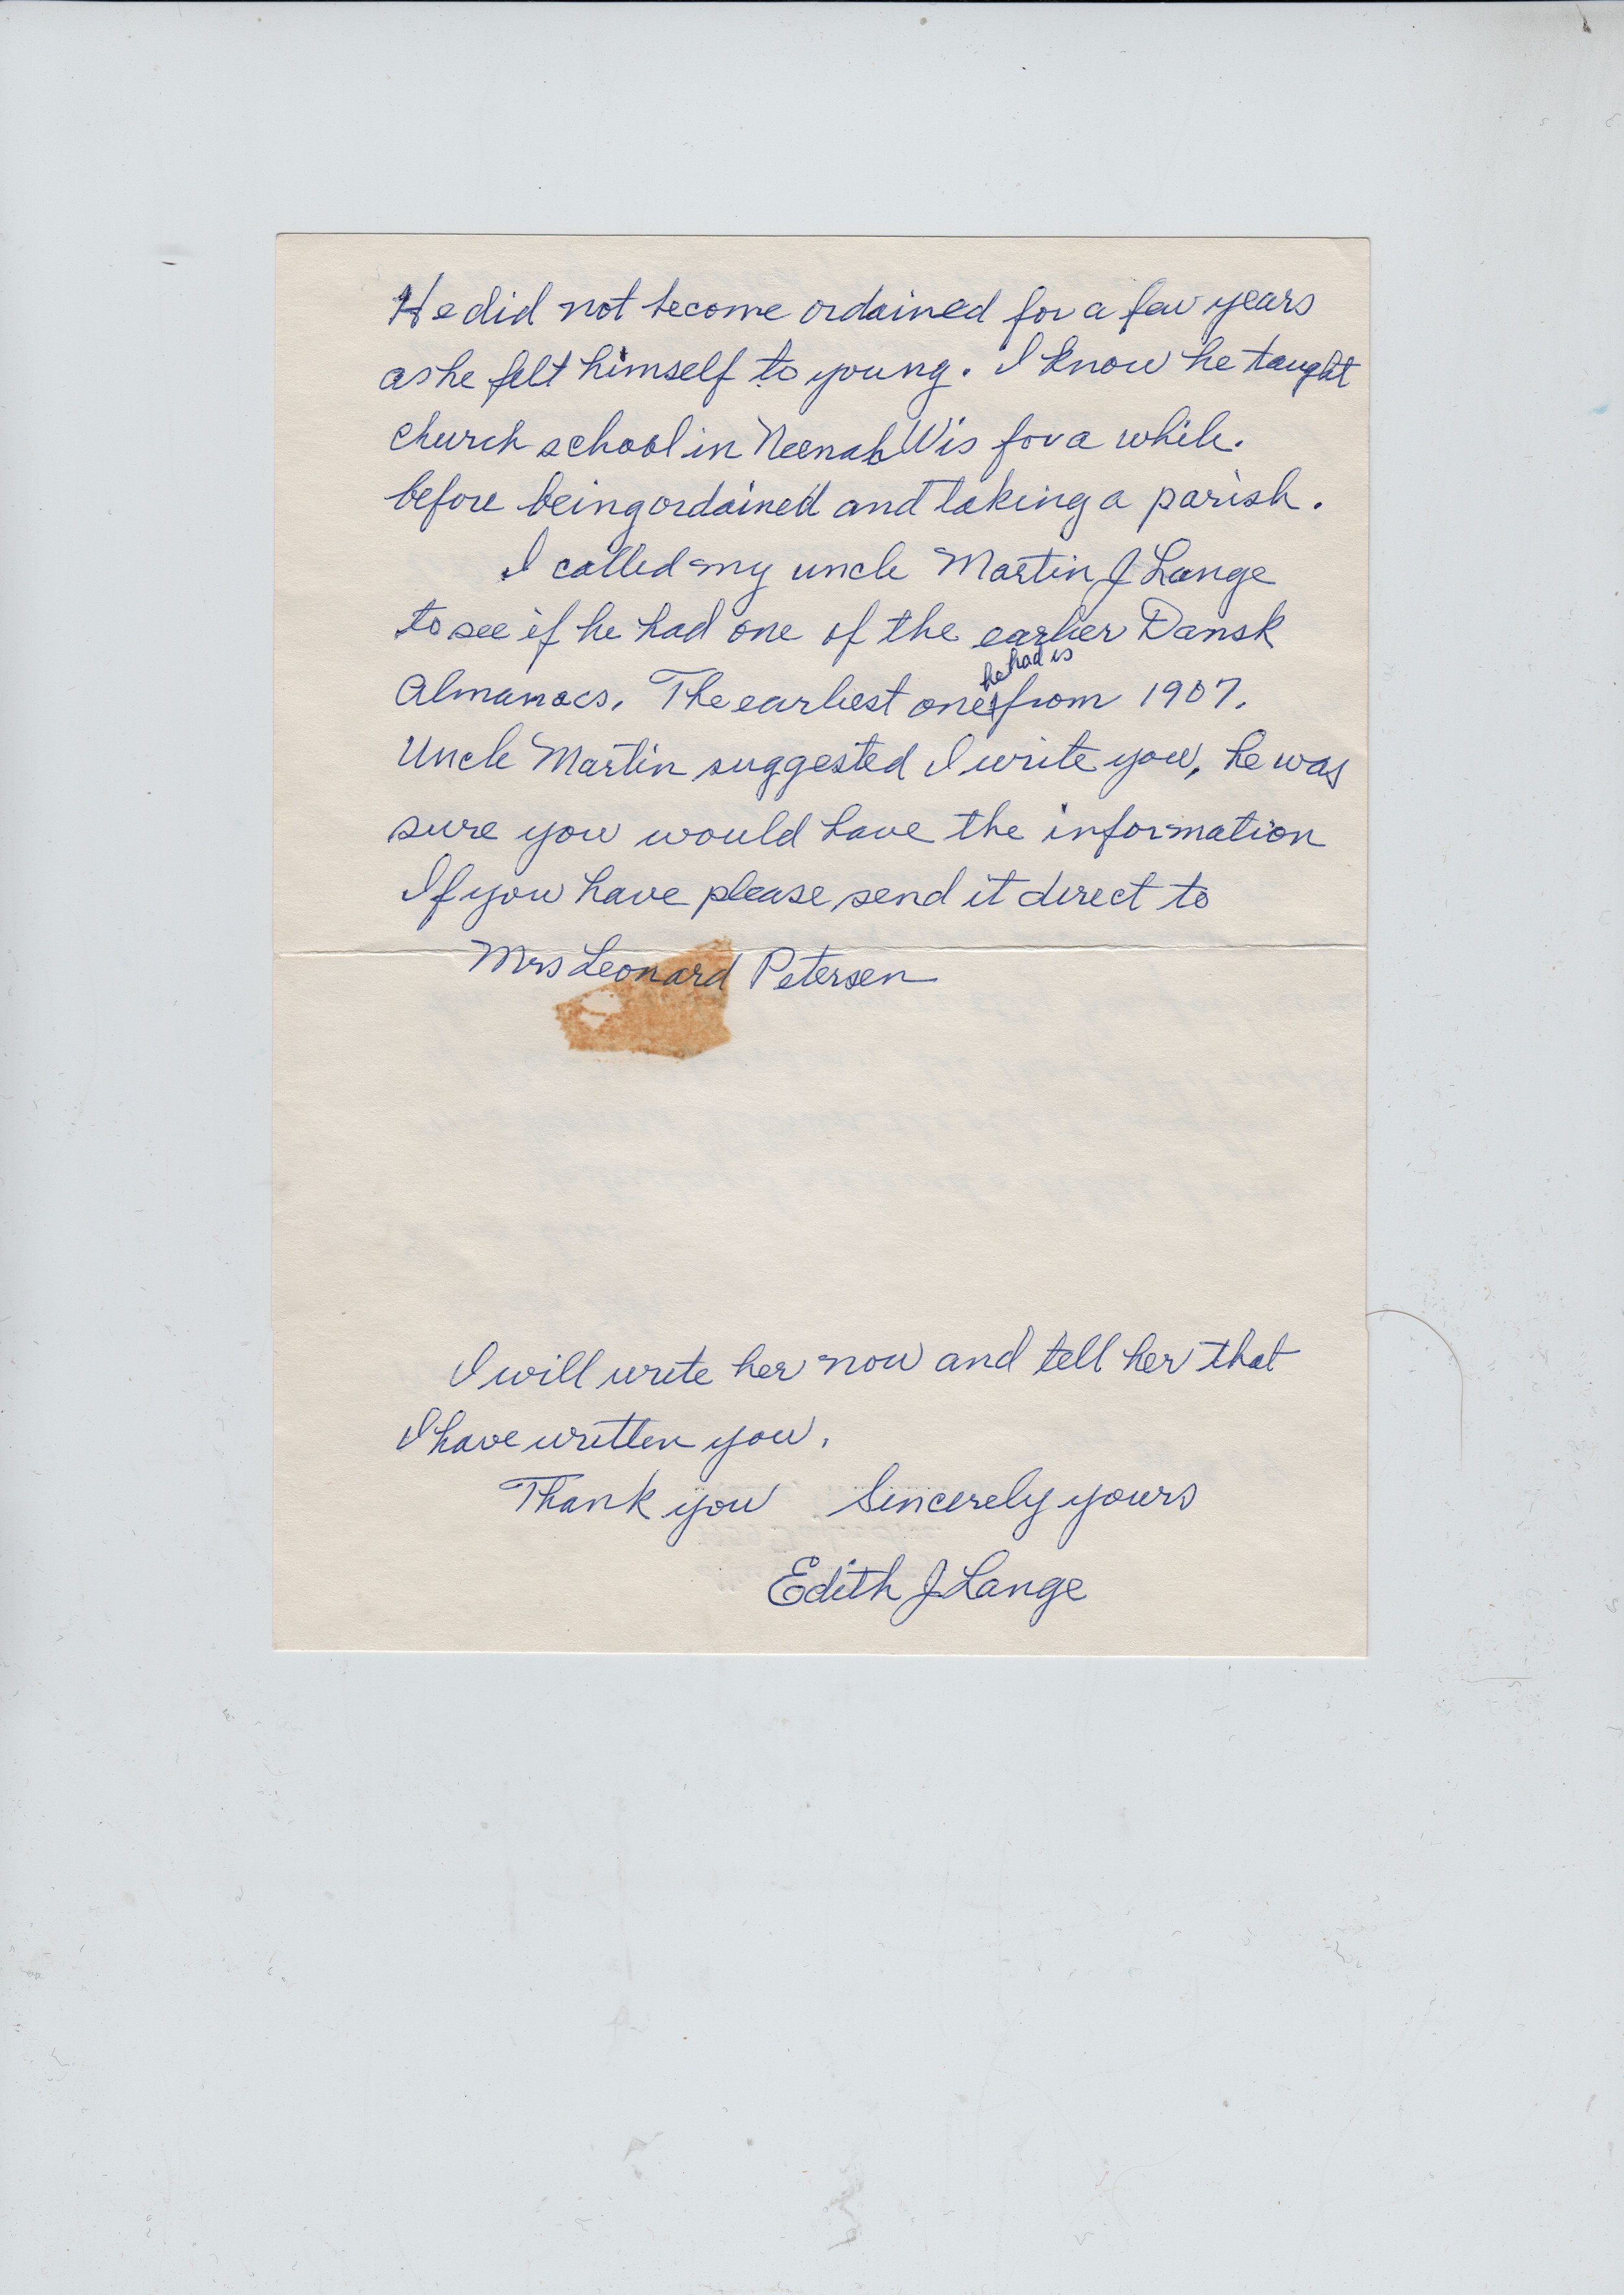 He did not become ordained for a few years
as he felt himself to young. I know he taught
church school in Neenah Wis for a while.
before being ordained and taking a parish.
I called my uncle Martin J Lange
to see if he had one of the earlier Dansk
he had is
Almanacs. The earliest one from 1907.
Uncle Martin suggested I write you, he was
sure you would have the information
If you have please send it direct to
Mrs Leonard Petersen
I will write her now and tell her that
I have written you.
Thank you Sincerely yours
Edith J Lange